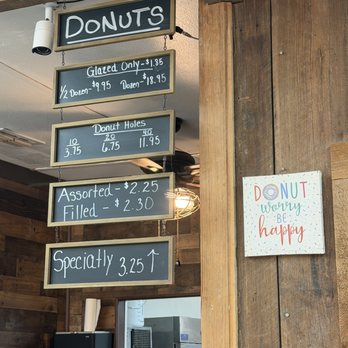 DONUTS
Glazed Only - $1.85
1/2 Dozen - $9.95 Dozen - $18.95
Donut Holes
10 20 40
3.75 6.75 11.95
Assorted - $2.25
Filled - $2.30
Speciatly 3.25 ↑
DONUT
worry
BE
happy